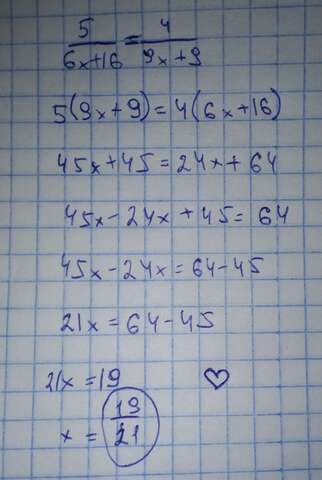 5/(6x+16) = 4/(9x+9)
5(9x+9)=4(6x+16)
45x+45=24x+64
45x-24x+45=64
45x-24x=64-45
21x=64-45
21x=19
x=19/21